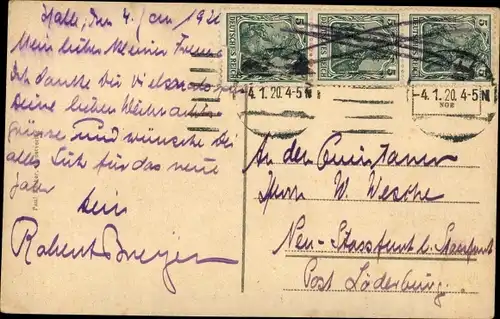 Halle, den 4. Jan 192
Mein lieber kleiner Freund
Ich danke Dir vielmals für
Deine lieben Weihnachts
grüsse und wünsche Dir
alles Gute für das neue
Jahr
Dein
Robert
5 DEUTSCHES REICH 5
5 DEUTSCHES REICH 5
5 DEUTSCHES REICH 5
-4.1.20.4-5N
-4.1.20.4-5N
An den
Herrn W. Wesche
Neu-Stassfurt b. Stassfurt
Post Löderburg.